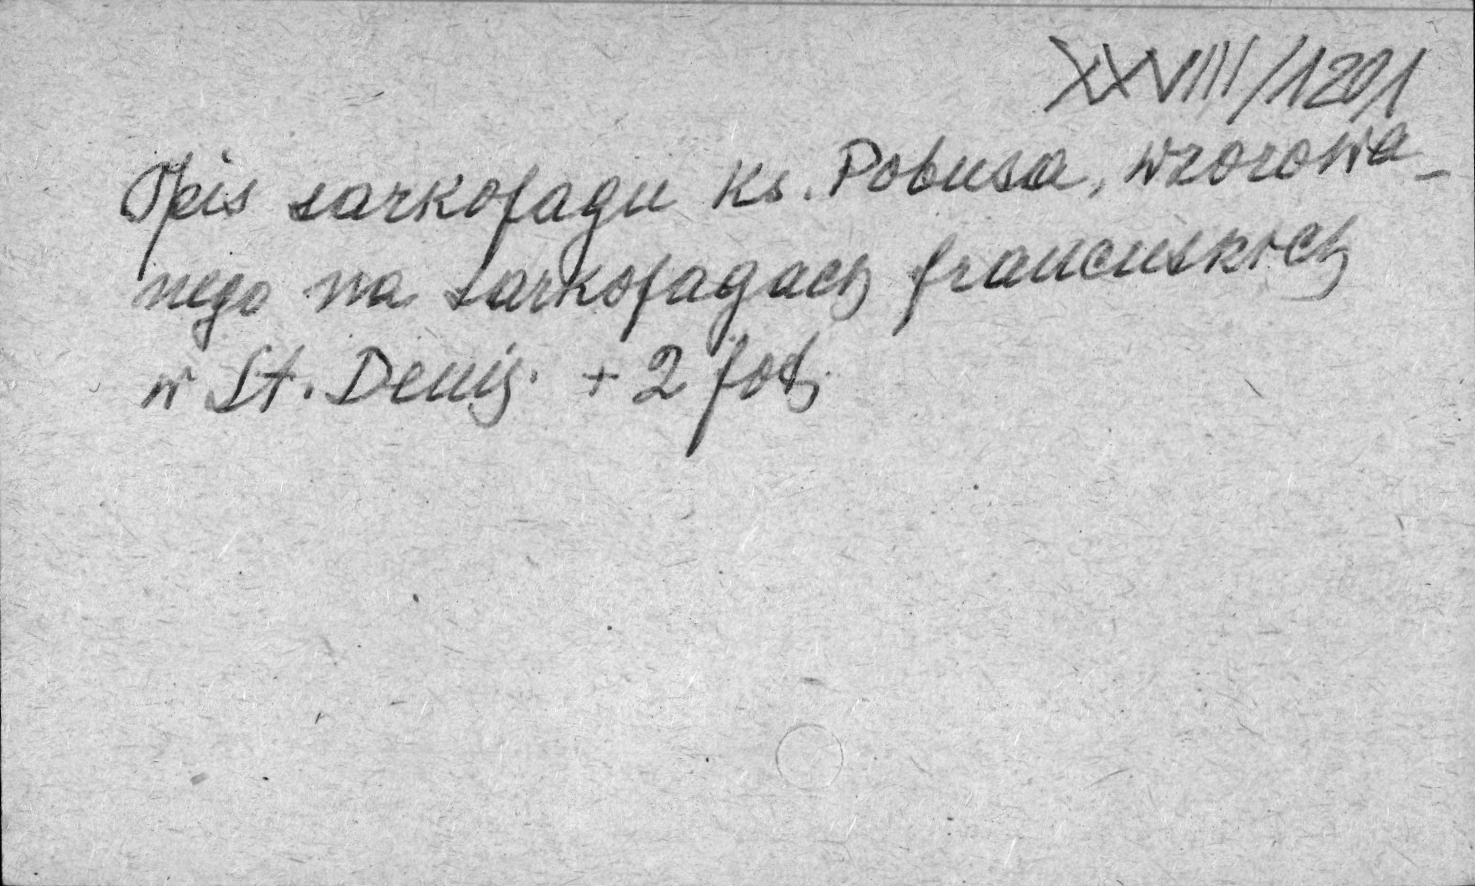 XXVIII/1201
Opis sarkofagu Ks. Pobusa, wzorowa-
nego na sarkofagach francuskich
w St. Denis. + 2 fot.